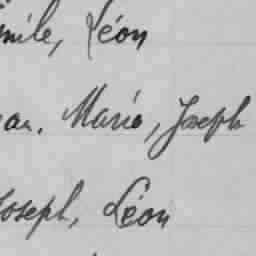 mile, Léon
an. Marie, Joseph
Joseph, Léon